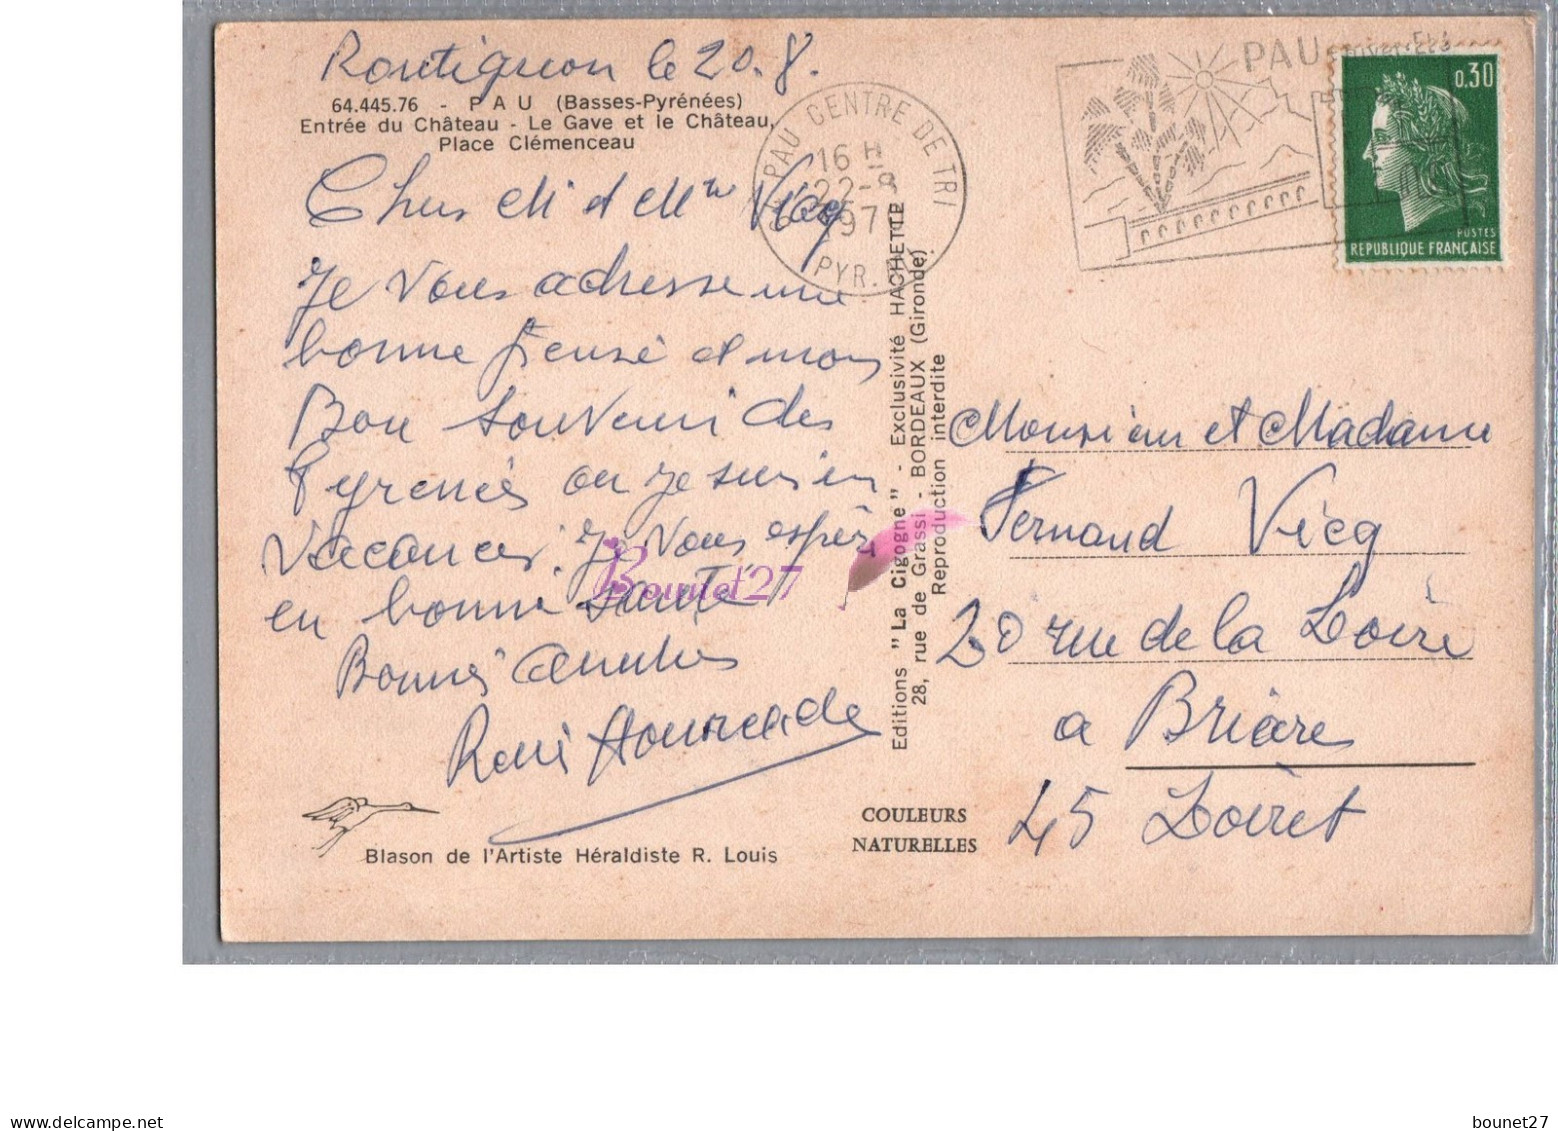 Rontignon le 20.8.
64.445.76 - PAU (Basses-Pyrénées)
Entrée du Château - Le Gave et le Château,
Place Clémenceau
Chers M et Mme Vieg
Je Vous adresse une
bonne pensée et mon
Bon souvenir des
Pyrenées ou Je suis en
Vacances. Je Vous espère
en bonne santé
Bonnes
René Hourcade
Blason de l'Artiste Héraldiste R. Louis
COULEURS
NATURELLES
Editions "La Cigogne" - Exclusivité HACHETTE
28, rue de Grassi - BORDEAUX (Gironde)
Reproduction interdite
PAU CENTRE DE TRI
16 H
22-8
197
PYR.
PAU
0.30
POSTES
REPUBLIQUE FRANÇAISE
Monsieur et Madame
Fernand Vieg
20 rue de la Loire
a Briare
45 Loiret
Bounet27
delcampe.net
bounet27